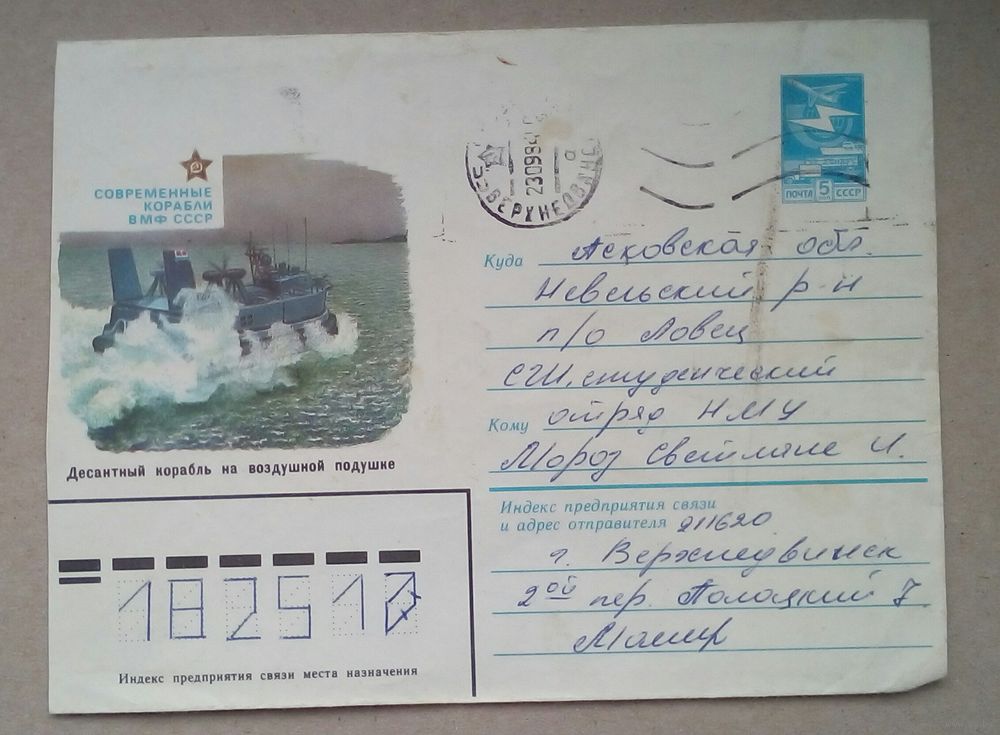 СОВРЕМЕННЫЕ
КОРАБЛИ
ВМФ СССР
Десантный корабль на воздушной подушке
ВЕРХНЕДВИНС
230984
а
ПОЧТА 5 КОП СССР
Куда Псковская обл.
Невельский р-н
п/о Ловец
СГИ, студенческий
Кому отряд НМУ
Мороз Светлане И.
Индекс предприятия связи
и адрес отправителя 211620
г. Верхнедвинск
2ой пер. Полоцкий 7
182510
Индекс предприятия связи места назначения